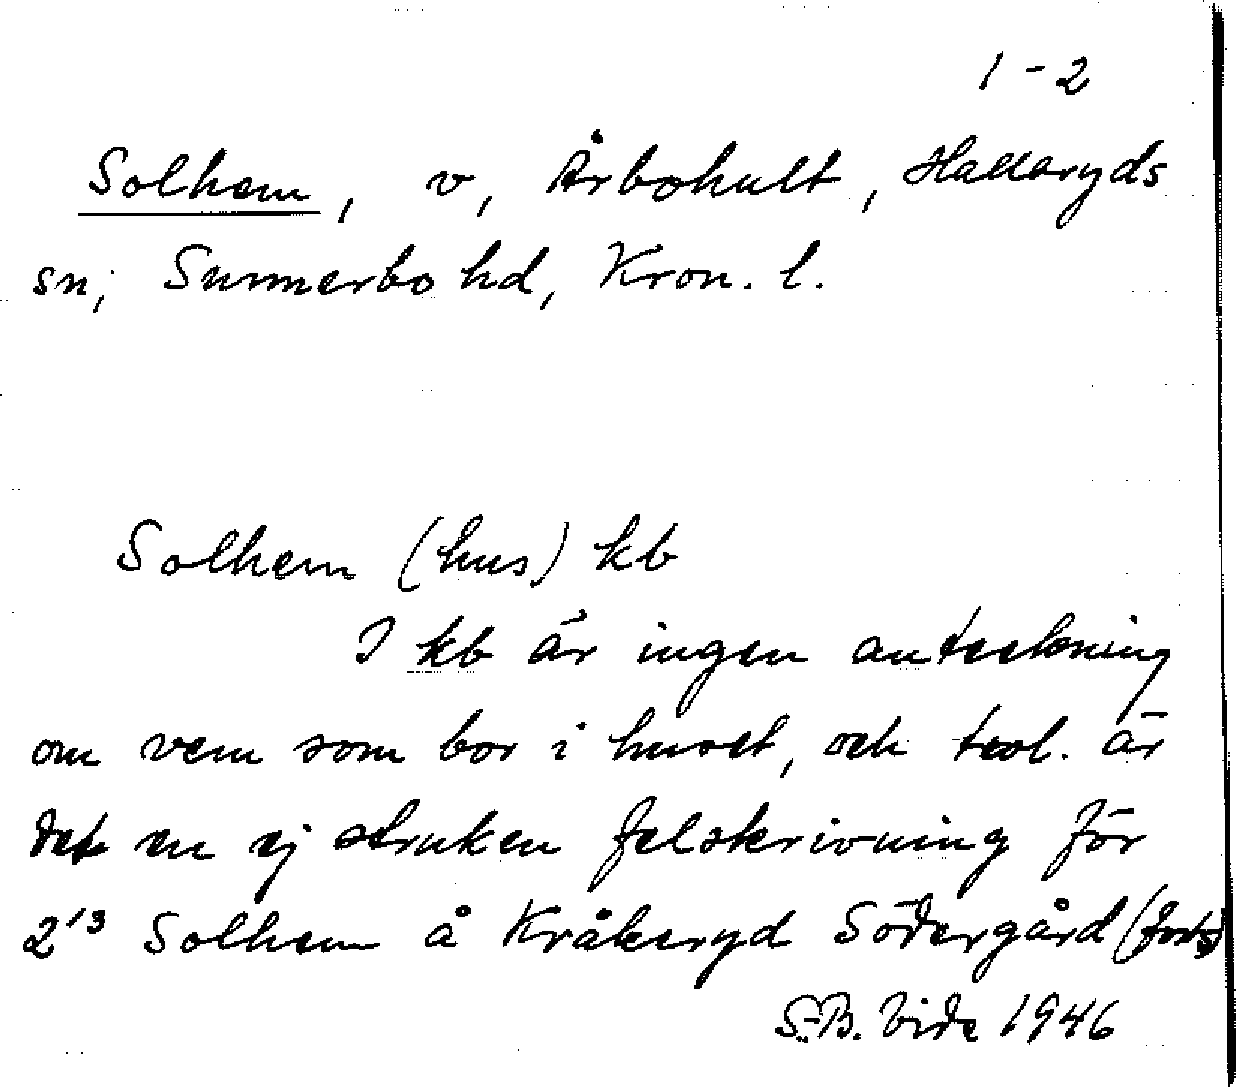 1-2
Solhem, v, Årbohult, Hallaryds
sn; Sunnerbo hd, Kron. l.
Solhem (hus) kb
I kb är ingen anteckning
om vem som bor i huset, och trol. är
det en ej struken felskrivning för
2¹³ Solhem å Kråkeryd Södergård (forts)
S.-B. Vide 1946